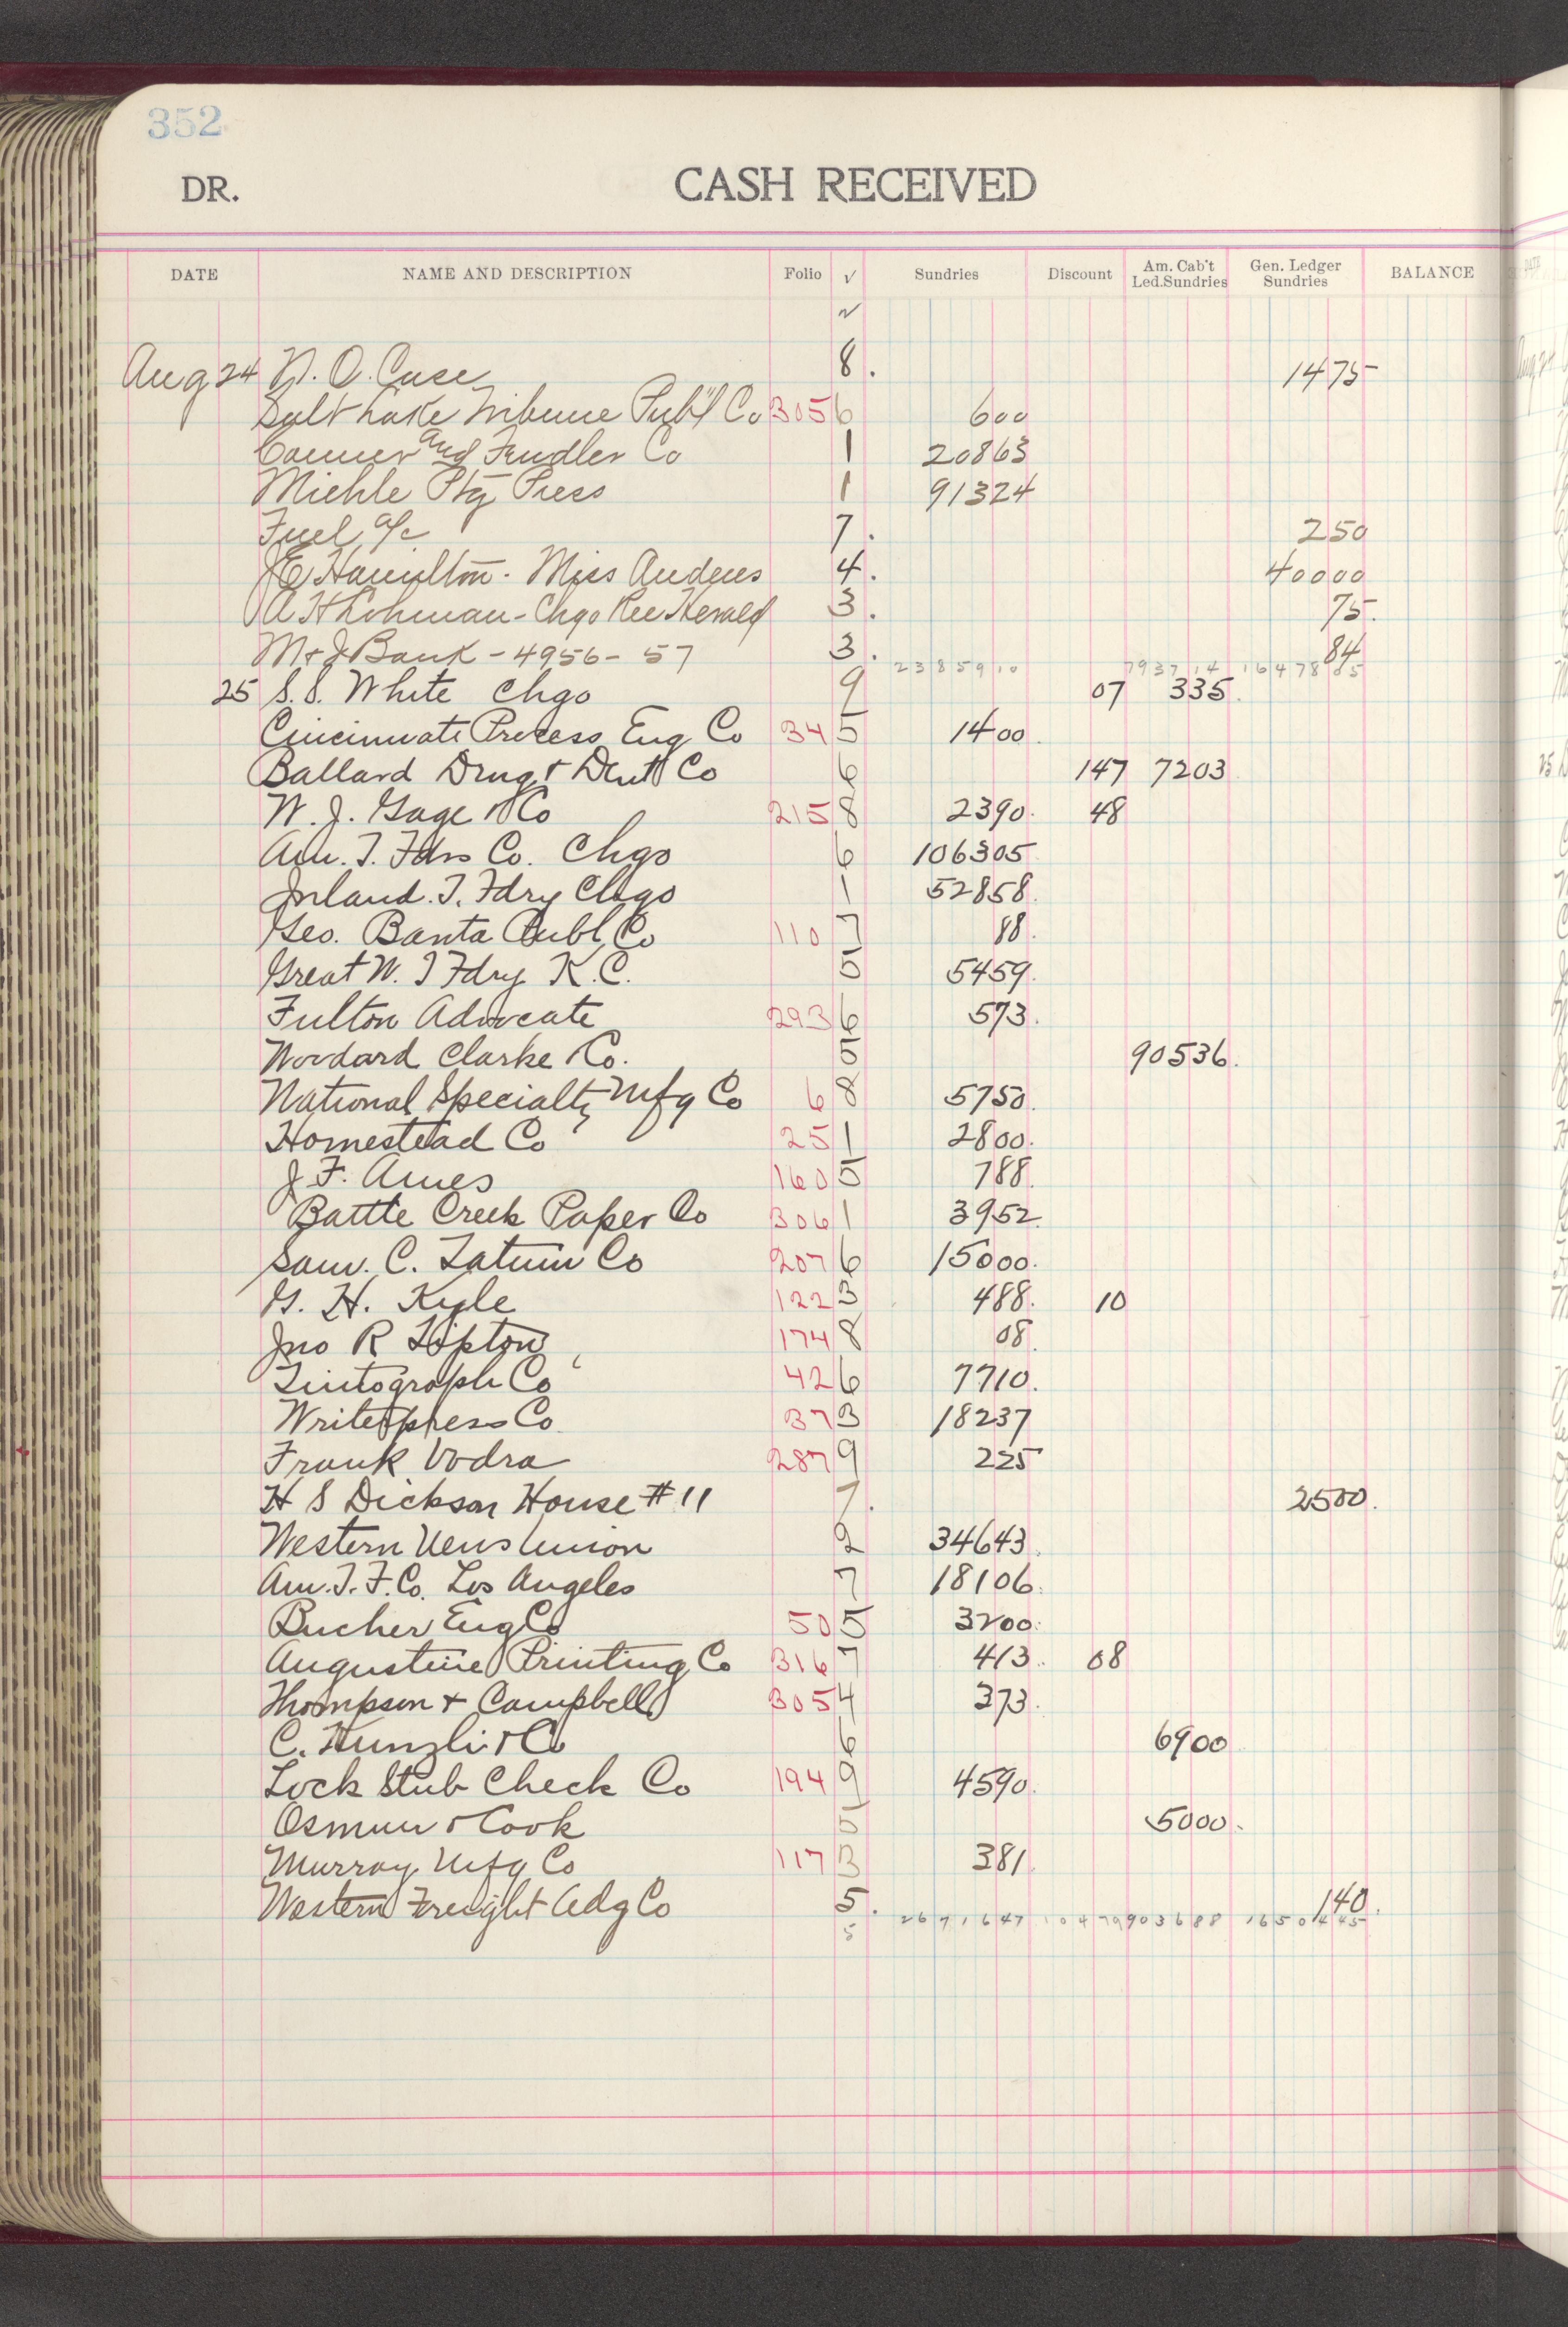 352
DR. CASH RECEIVED
DATE NAME AND DESCRIPTION Folio √ Sundries Discount Am. Cab't Led.Sundries Gen. Ledger Sundries BALANCE
√
Aug 24 N. O. Case 8. 1475
Salt Lake Tribune Pub'l Co 305 6 600
Conner and Fendler Co 1 20863
Miehle Ptg Press 1 91324
Fuel a/c 7. 250
J E Hamilton - Miss Andrews 4. 40000
A H Lohman - Chgo Rec Herald 3. 75.
M & J Bank - 4956 - 57 3. 84
2385910 793714 1647805
25 S. S. White Chgo 9 07 335.
Cincinnati Process Eng Co 34 5 1400.
Ballard Drug & Dent Co 6 147 7203
W. J. Gage & Co 215 8 2390. 48
Am. T. Fdrs Co. Chgo 6 106305
Inland. T. Fdry Chgo 1 52858.
Geo. Banta Publ Co 110 7 88.
Great W. T Fdry K. C. 5 5459.
Fulton Advocate 293 6 573.
Woodard Clarke & Co. 5 90536.
National Specialty Mfg Co 6 8 5750.
Homestead Co 25 1 2800.
J. F. Ames 160 5 788.
Battle Creek Paper Co 306 1 3952.
Sam. C. Tatum Co 207 6 15000.
G. H. Kyle 122 3 488. 10
Jno R Lipton 174 8 08.
Tintograph Co 42 6 7710.
Writerpress Co. 37 3 18237
Frank Vodra 287 9 225
H S Dickson House # 11 7. 2500.
Western News Union 2 34643.
Am. T. F. Co. Los Angeles 7 18106.
Bucher Eng Co 50 5 3200.
Augustine Printing Co 316 7 413. 08
Thompson & Campbell 305 4 373.
C. Kunzli & Co 6 6900
Lock Stub Check Co 194 9 4590.
Osmun & Cook 5 5000.
Murray Mfg Co 117 3 381.
Western Freight Adg Co 5. 140.
5 2671647 10479 903688 1650445